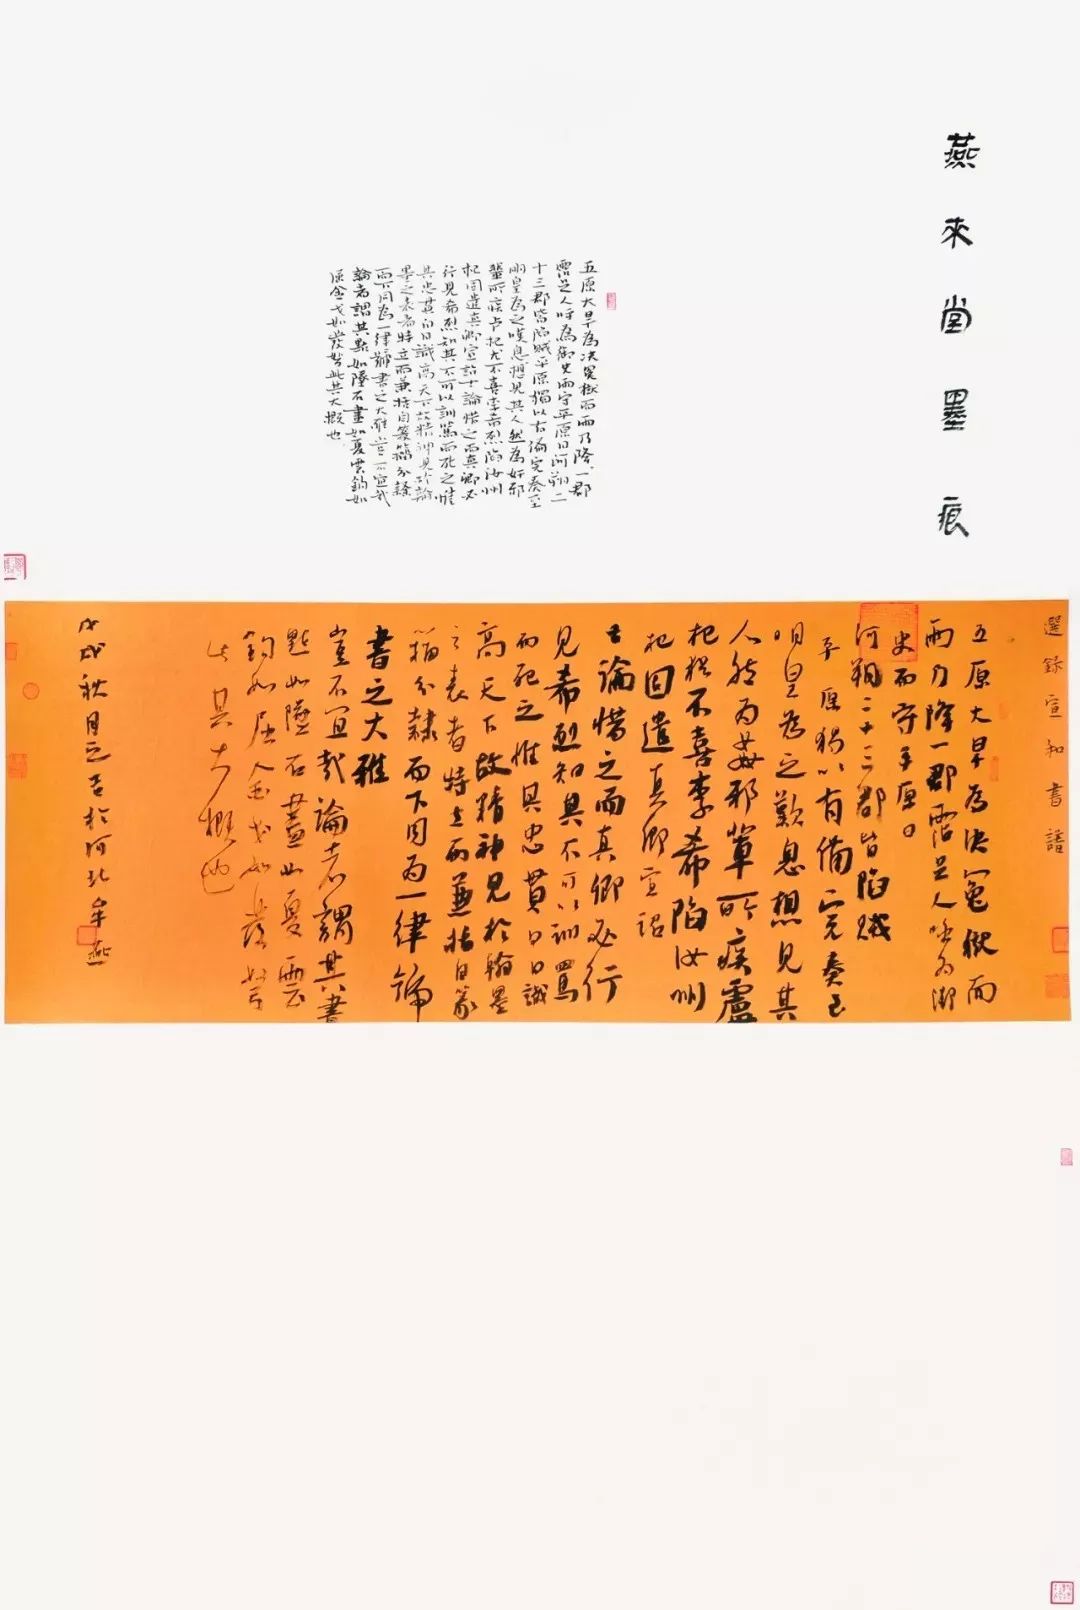 燕來堂墨痕
五原大旱為決冤獄而雨乃降一郡
霑足人呼為御史雨守平原日河朔二
十三郡皆陷賊平原獨以有備完奏至
明皇為之嘆息想見其人然為奸邪
輩所疾卢杞尤不喜李希烈陷汝州
杞因遣真卿宣詔士論惜之而真卿必
行見希烈知其不可以訓罵而死之惟
其忠貫白日識高天下故精神見於翰
墨之表者特立而兼括自篆籀分隸
而下同為一律號書之大雅豈不宜哉
論者謂其點如墜石畫如夏雲鈎如
屈金戈如發弩此其大概也
選錄宣和書譜
五原大旱為決冤獄而
雨乃降一郡霑足人呼為御
史雨守平原日
河朔二十三郡皆陷賊
平原獨以有備完奏至
明皇為之歎息想見其
人然為奸邪輩所疾盧
杞猶不喜李希烈陷汝州
杞因遣真卿宣詔
士論惜之而真卿必行
見希烈知其不可以訓罵
而死之惟其忠貫白日識
高天下故精神見於翰墨
之表者特立而兼括自篆
籀分隸而下同為一律號
書之大雅
豈不宜哉論者謂其書
點如墜石畫如夏雲
鈎如屈金戈如發弩
此其大概也
戊戌秋月之吉於河北牟燕